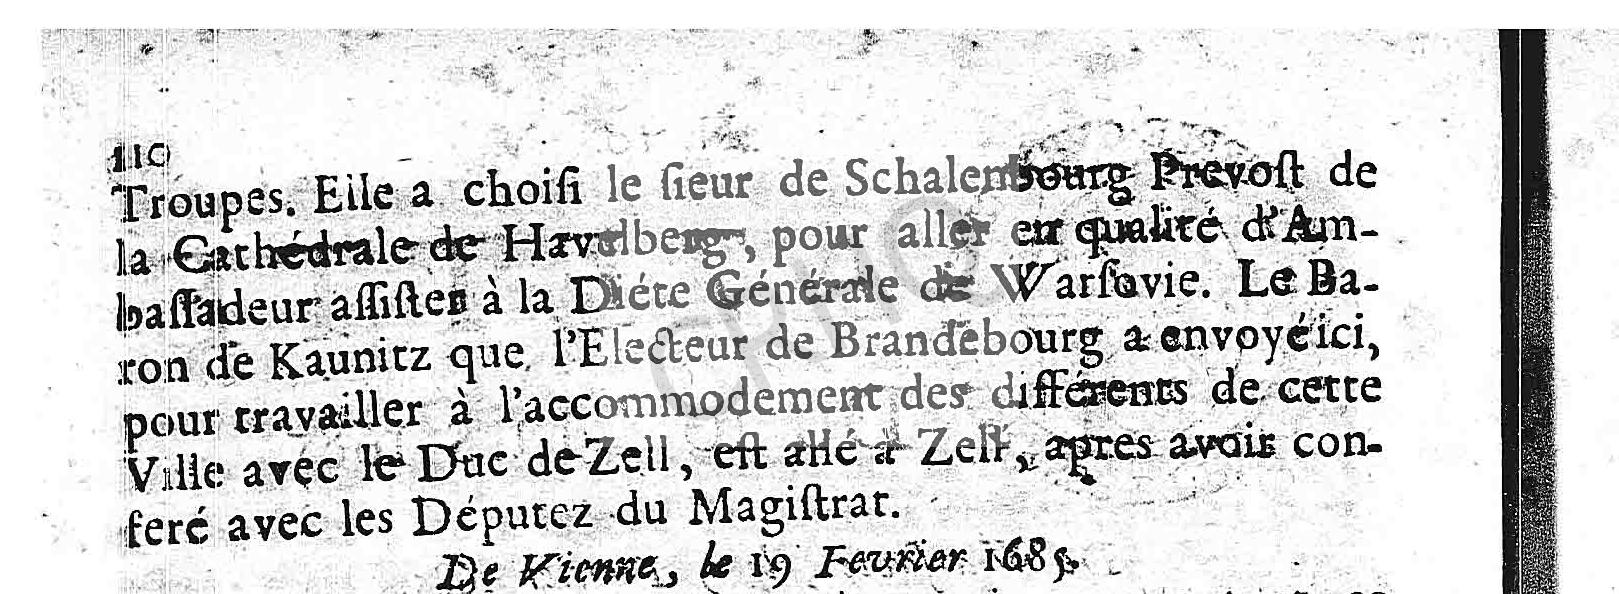 110
Troupes. Elle a choiſi le ſieur de Schalenbourg Prevoſt de
la Cathédrale de Havelberg, pour aller en qualité d'Am-
baſſadeur aſſiſter à la Diéte Générale de Warſovie. Le Ba-
ron de Kaunitz que l'Electeur de Brandebourg a envoyé ici,
pour travailler à l'accommodement des différents de cette
Ville avec le Duc de Zell, eſt allé à Zell, apres avoir con-
feré avec les Députez du Magiſtrat.
De Vienne, le 19 Fevrier 1685.